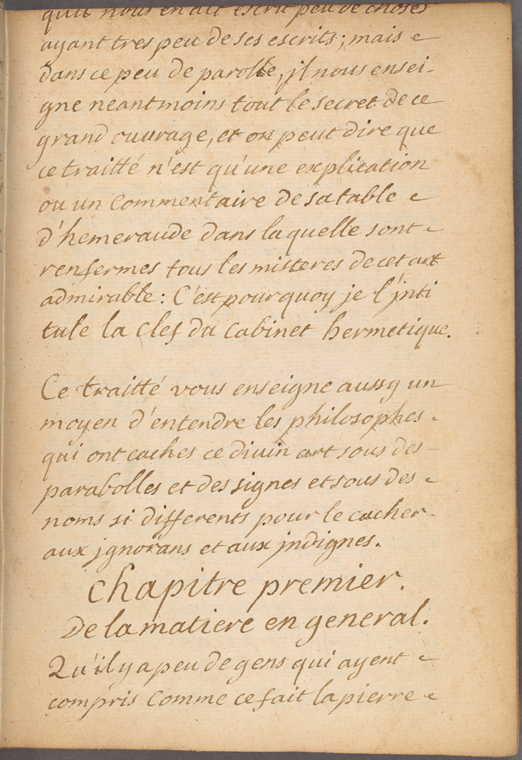 quil nous en ait escrit peu de choses
ayant tres peu de ses escrits; mais
dans ce peu de parolle, jl nous ensei-
gne neantmoins tout le secret de ce
grand ouurage, et on peut dire que
ce traitté n'est qu'une explication
ou un Commentaire de sa table
d'hemeraude dans laquelle sont
renfermes tous les misteres de cet art
admirable: C'est pourquoy je l'jnti
tule la Clef du Cabinet hermetique.
Ce traitté vous enseigne aussy un
moyen d'entendre les philosophes
qui ont cachés ce divin art sous des
parabolles et des signes et sous des
noms si differents pour le cacher
aux jgnorans et aux jndignes.
Chapitre premier.
De la matiere en general.
Qu'il y a peu de gens qui ayent
compris Comme ce fait la pierre